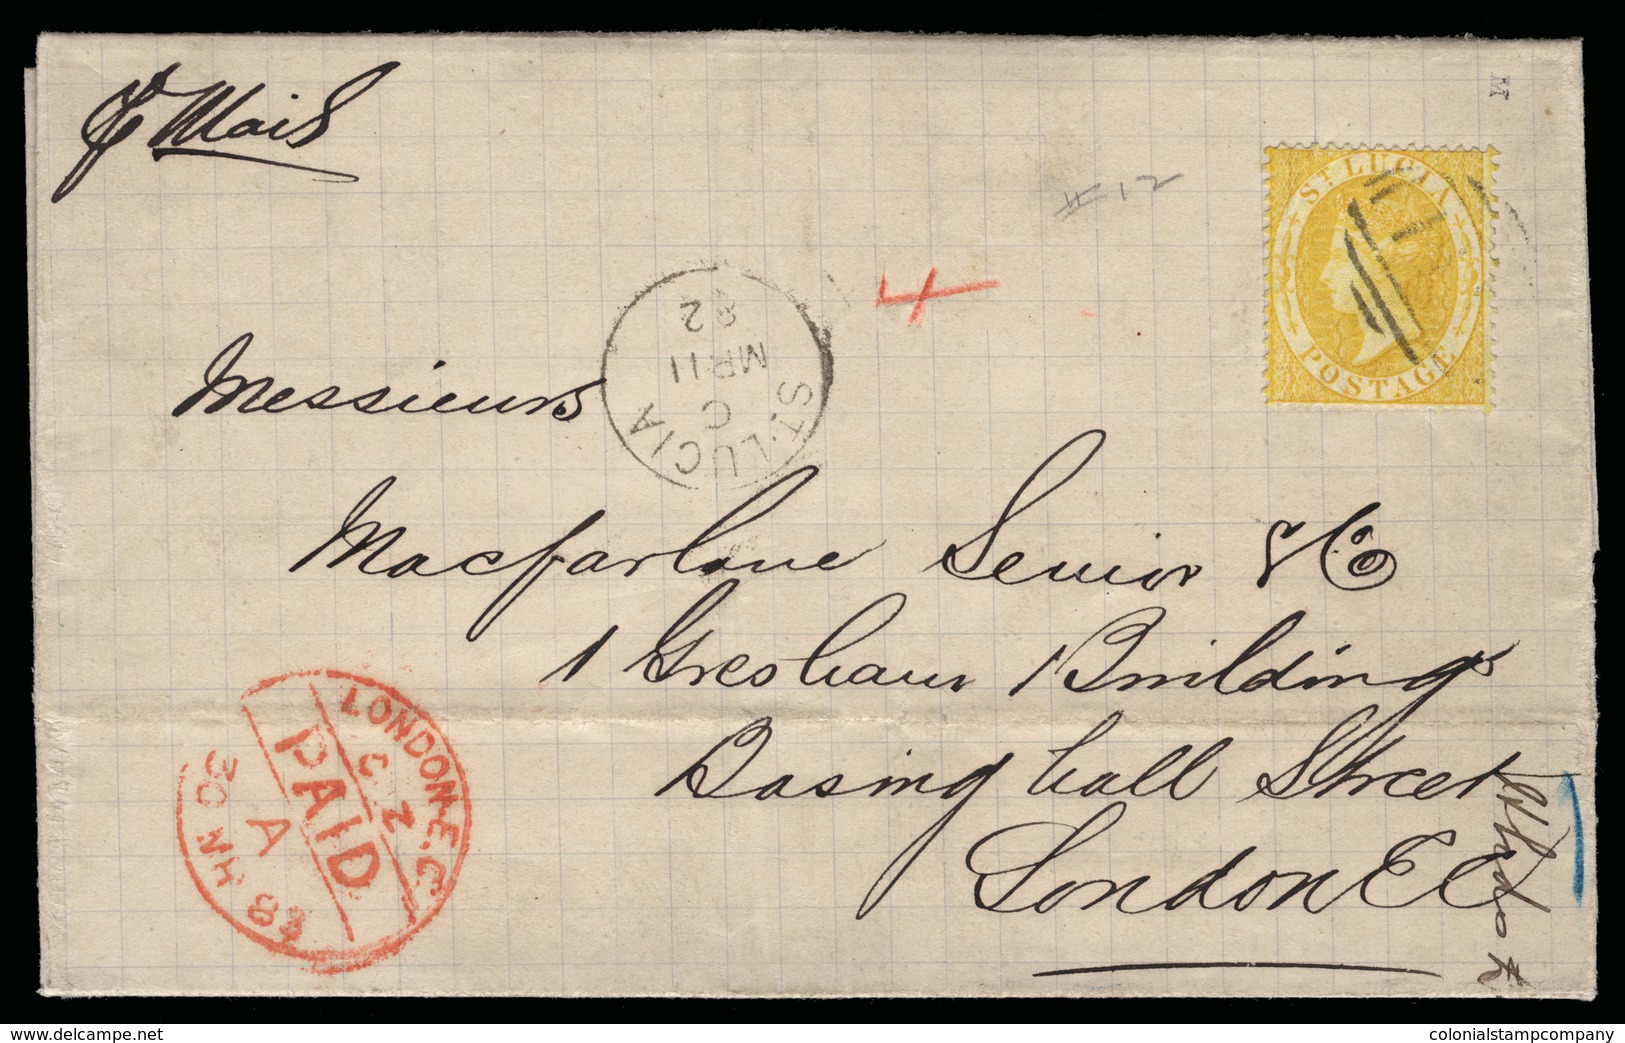 p Mail
M
ST LUCIA
POSTAGE
#12
4
ST. LUCIA
C
MR 11
82
Messieurs
Macfarlane Senior & Co
1 Gresham Buildings
Basinghall Street
London E C
LONDON.E.C.
C Z
PAID
A
30 MH 82
delcampe.net
colonialstampcompany